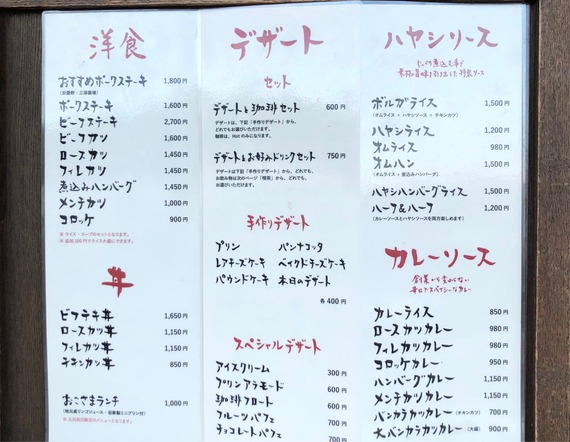 洋食
おすすめポークステーキ 1,800円
ポークステーキ 1,600円
ビーフステーキ 2,700円
ビーフカツ 1,600円
ロースカツ 1,450円
フィレカツ 1,450円
煮込みハンバーグ 1,450円
メンチカツ 1,000円
コロッケ 900円
※ライス・スープのセットとなります。
※追加100円でライス大盛にできます。
丼
ビフテキ丼 1,650円
ロースカツ丼 1,150円
フィレカツ丼 1,150円
チキンカツ丼 850円
おこさまランチ 1,000円
デザート
セット
デザートと珈琲セット 600円
デザートは、下記「手作りデザート」から、
どれでもお選びいただけます。
珈琲は、Hotのみになります。
デザートとお好みドリンクセット 750円
デザートは下記「手作りデザート」から、どれでも、
お飲み物は次のページ「喫茶」から、どれでも、
お選びいただけます。
手作りデザート
プリン パンナコッタ
レアチーズケーキ ベイクドチーズケーキ
パウンドケーキ 本日のデザート
各400円
スペシャルデザート
アイスクリーム 300円
プリンアラモード 600円
珈琲フロート 600円
フルーツパフェ 700円
チョコレートパフェ 700
ハヤシソース
じっくり煮込む事で
ボルガライス 1,500円
（オムライス × ハヤシソース × チキンカツ）
ハヤシライス 1,200円
オムライス 980円
オムハン 1,500円
（オムライス × 煮込みハンバーグ）
ハヤシハンバーグライス 1,500円
ハーフ&ハーフ 1,200円
（カレーソースとハヤシソースを両方楽しめます）
カレーソース
創業から変わらない
辛口でスパイシーなカレー
カレーライス 850円
ロースカツカレー 980円
フィレカツカレー 980円
コロッケカレー 950円
ハンバーグカレー 1,150円
メンチカツカレー 1,150円
バンカラカツカレー（チキンカツ） 700円
大バンカラカツカレー（大盛） 900円